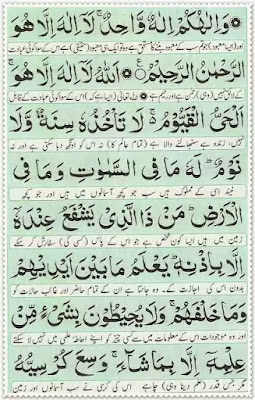 وَاِلٰهُكُمْ اِلٰهٌ وَّاحِدٌ ۚ لَآ اِلٰهَ اِلَّا هُوَ
اور (ایسا معبود) جو تم سب کے معبود بننے کا مستحق ہے وہ تو ایک ہی معبود (حقیقی) ہے اس کے سوا کوئی عبادت
الرَّحْمٰنُ الرَّحِيْمُ ۞ اَللّٰهُ لَآ اِلٰهَ اِلَّا هُوَ ۚ
کے لائق نہیں (وہی) رحمٰن ہے اور رحیم ہے اللہ تعالیٰ (ایسا ہے کہ) اس کے سوا کوئی عبادت کے قابل
اَلْحَيُّ الْقَيُّوْمُ ۚ لَا تَاْخُذُهٗ سِنَةٌ وَّلَا
نہیں، زندہ ہے سنبھالنے والا ہے (تمام عالم کا) نہ اس کو اونگھ دبا سکتی ہے اور نہ
نَوْمٌ ؕ لَهٗ مَا فِي السَّمٰوٰتِ وَمَا فِي
نیند اسی کے مملوک ہیں سب جو کچھ آسمانوں میں ہیں اور جو کچھ
الْاَرْضِ ؕ مَنْ ذَا الَّذِيْ يَشْفَعُ عِنْدَهٗٓ
زمین میں ہیں ایسا کون شخص ہے جو اس کے پاس (کسی کی) سفارش کر سکے
اِلَّا بِاِذْنِهٖ ؕ يَعْلَمُ مَا بَيْنَ اَيْدِيْهِمْ
بدون اس کی اجازت کے۔ وہ جانتا ہے ان کے تمام حاضر اور غائب حالات کو
وَمَا خَلْفَهُمْ ۚ وَلَا يُحِيْطُوْنَ بِشَيْءٍ مِّنْ
اور وہ موجودات اس کے معلومات میں سے کسی چیز کو اپنے احاطہ علمی میں نہیں لا سکتے
عِلْمِهٖٓ اِلَّا بِمَا شَآءَ ۚ وَسِعَ كُرْسِيُّهُ
مگر جس قدر (علم دینا وہی) چاہے اس کی کرسی نے سب آسمانوں اور زمین